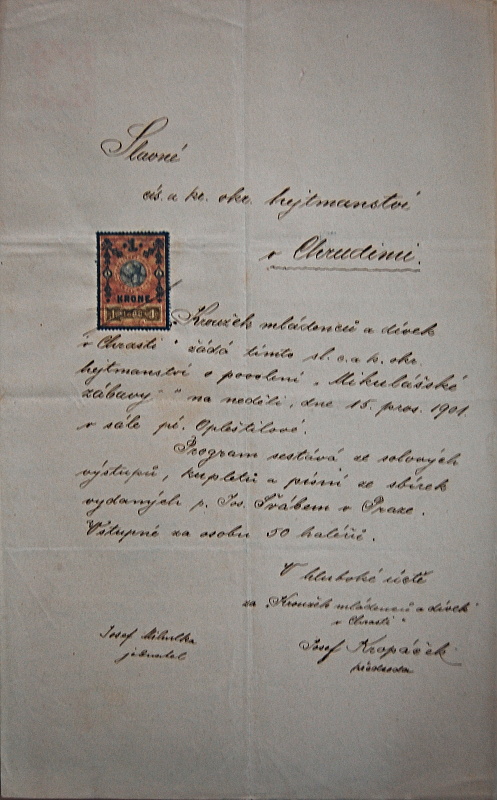 Slavné
cís. a kr. okr. hejtmanství
v Chrudimi.
1
KRONE
1 1
„Kroužek mládenců a dívek
v Chrasti“ žádá tímto sl. c. a k. okr.
hejtmanství o povolení „Mikulášské
zábavy“ na neděli, dne 15. pros. 1901
v sále pí. Opleštilové.
Program sestává ze solových
výstupů, kupletů a písní ze sbírek
vydaných p. Jos. Švábem v Praze.
Vstupné za osobu 50 haléřů.
V hluboké úctě
za „Kroužek mládenců a dívek
v Chrasti“
Josef Mihulka
jednatel
Josef Kropáček
předseda